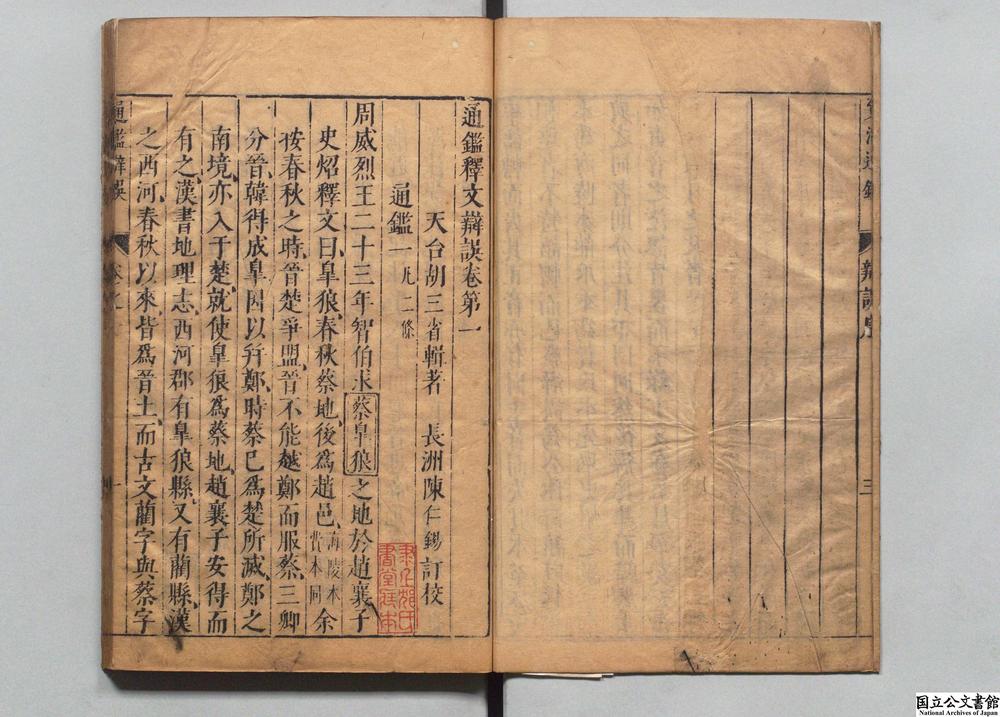 通鑑釋文辯誤卷第一
天台胡三省輯著　長洲陳仁錫訂校
通鑑一凡二條
周威烈王二十三年智伯求蔡皐狼之地於趙襄子
史炤釋文曰皐狼春秋蔡地後爲趙邑海陵本費本同余
按春秋之時晉楚爭盟晉不能越鄭而服蔡三卿
分晉韓得成皐因以幷鄭時蔡已爲楚所滅鄭之
南境亦入于楚就使皐狼爲蔡地趙襄子安得而
有之漢書地理志西河郡有皐狼縣又有藺縣漢
之西河春秋以來皆爲晉土而古文藺字與蔡字
通鑑辯誤　卷之一　一
辯誤序　三
国立公文書館
National Archives of Japan